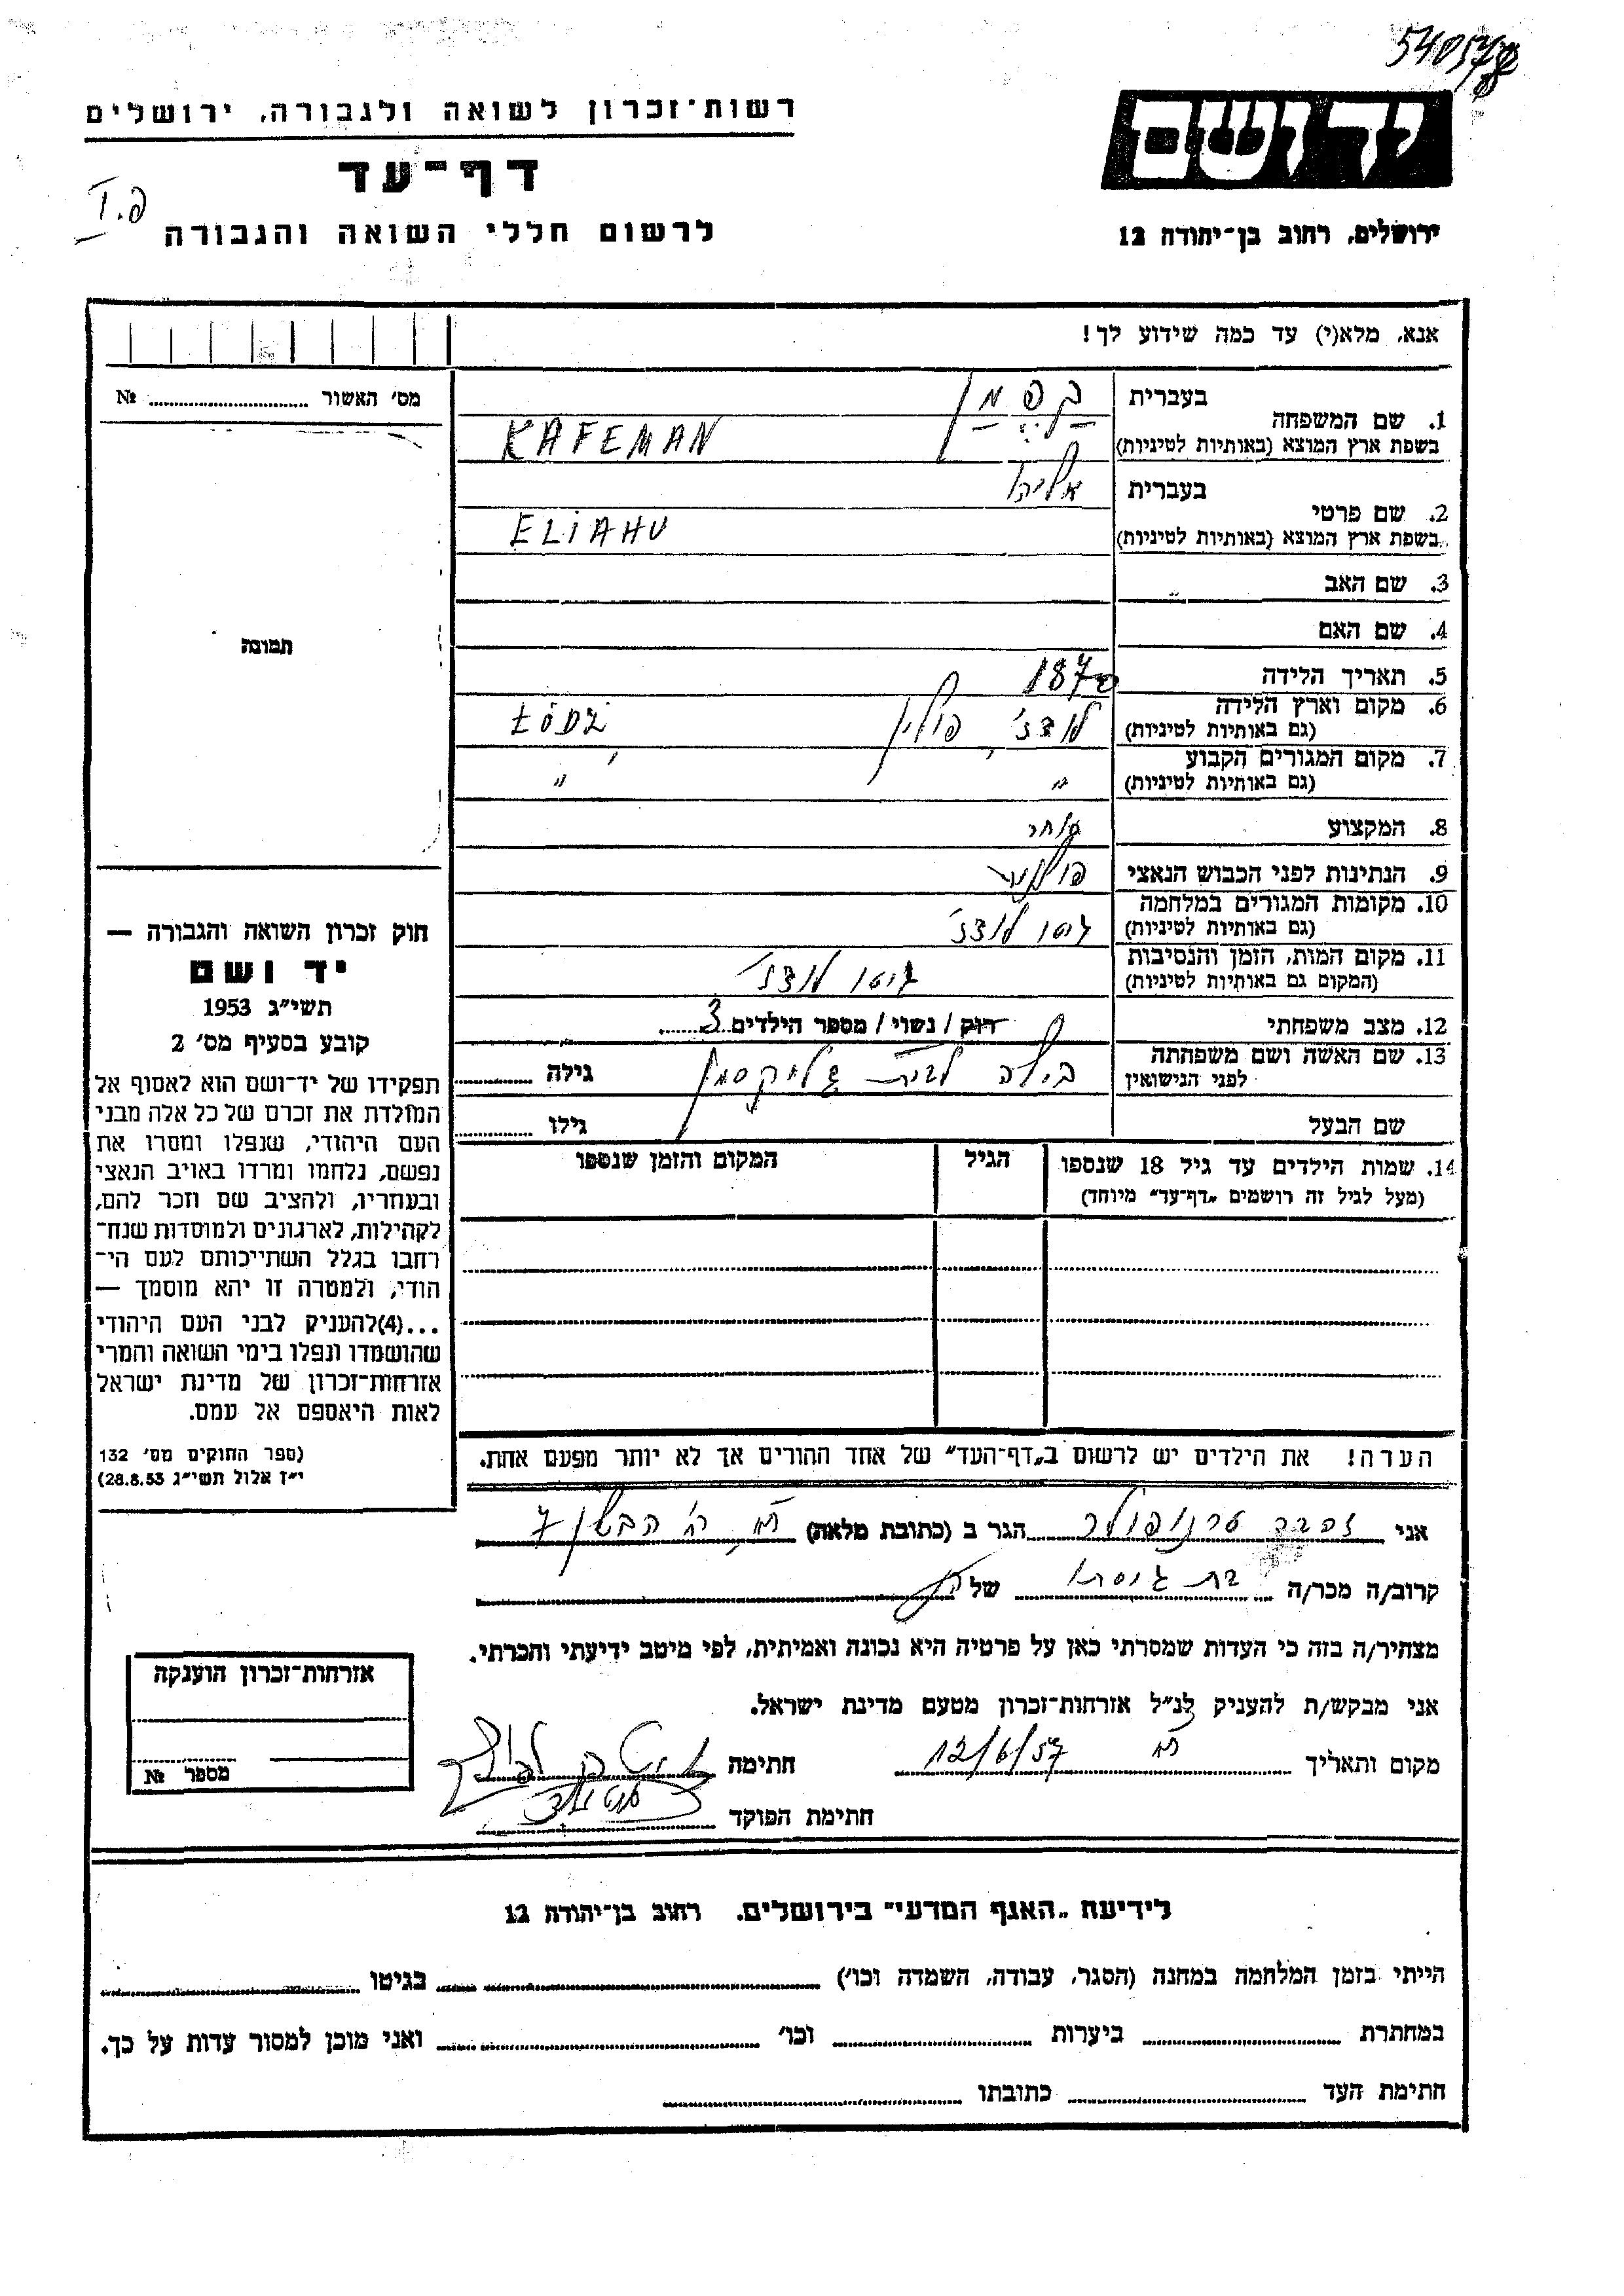 540578
רשות־זכרון לשואה ולגבורה, ירושלים
יד ושם
דף־עד
פ.I
לרשום חללי השואה והגבורה
ירושלים, רחוב בן־יהודה 12
אנא, מלא(י) עד כמה שידוע לך!
מס׳ האשור № ..........
1. שם המשפחה
בעברית קפמן
בשפת ארץ המוצא (באותיות לטיניות) KAFEMAN
2. שם פרטי
בעברית אליהו
בשפת ארץ המוצא (באותיות לטיניות) ELIAHU
3. שם האב
4. שם האם
תמונה
5. תאריך הלידה 1870
6. מקום וארץ הלידה
(גם באותיות לטיניות) לודז׳, פולין ŁÓDŹ
7. מקום המגורים הקבוע
(גם באותיות לטיניות) " "
8. המקצוע סוחר
9. הנתינות לפני הכבוש הנאצי
10. מקומות המגורים במלחמה
(גם באותיות לטיניות) גטו לודז׳
11. מקום המות, הזמן והנסיבות
(המקום גם באותיות לטיניות) גטו לודז׳
12. מצב משפחתי רוק / נשוי / מספר הילדים 3
13. שם האשה ושם משפחתה
לפני הנישואין בילה לבית גליקסמן גילה ..........
שם הבעל גילו ..........
14. שמות הילדים עד גיל 18 שנספו
(מעל לגיל זה רושמים „דף־עד״ מיוחד)
הגיל
המקום והזמן שנספו
חוק זכרון השואה והגבורה —
יד ושם
תשי״ג 1953
קובע בסעיף מס׳ 2
תפקידו של יד־ושם הוא לאסוף אל
המולדת את זכרם של כל אלה מבני
העם היהודי, שנפלו ומסרו את
נפשם, נלחמו ומרדו באויב הנאצי
ובעוזריו, ולהציב שם וזכר להם,
לקהילות, לארגונים ולמוסדות שנח־
רחבו בגלל השתייכותם לעם הי־
הודי, ולמטרה זו יהא מוסמך —
...(4)להעניק לבני העם היהודי
שהושמדו ונפלו בימי השואה והמרי
אזרחות־זכרון של מדינת ישראל
לאות היאספם אל עמם.
(ספר החוקים מס׳ 132
י״ז אלול תשי״ג 28.8.53)
הערה! את הילדים יש לרשום ב„דף־העד״ של אחד ההורים אך לא יותר מפעם אחת.
אני זהבה טרנופולר הגר ב (כתובת מלאה)
קרוב/ה מכר/ה בת גיסתו של
מצהיר/ה בזה כי העדות שמסרתי כאן על פרטיה היא נכונה ואמיתית, לפי מיטב ידיעתי והכרתי.
אני מבקש/ת להעניק לנ״ל אזרחות־זכרון מטעם מדינת ישראל.
מקום ותאריך 12/6/57 חתימה
חתימת הפוקד
אזרחות־זכרון הוענקה
מספר №
לידיעת „האגף המדעי״ בירושלים. רחוב בן־יהודה 12
הייתי בזמן המלחמה במחנה (הסגר, עבודה, השמדה וכו׳) .......... בגיטו ..........
במחתרת .......... ביערות .......... וכו׳ .......... ואני מוכן למסור עדות על כך.
חתימת העד .......... כתובתו ..........